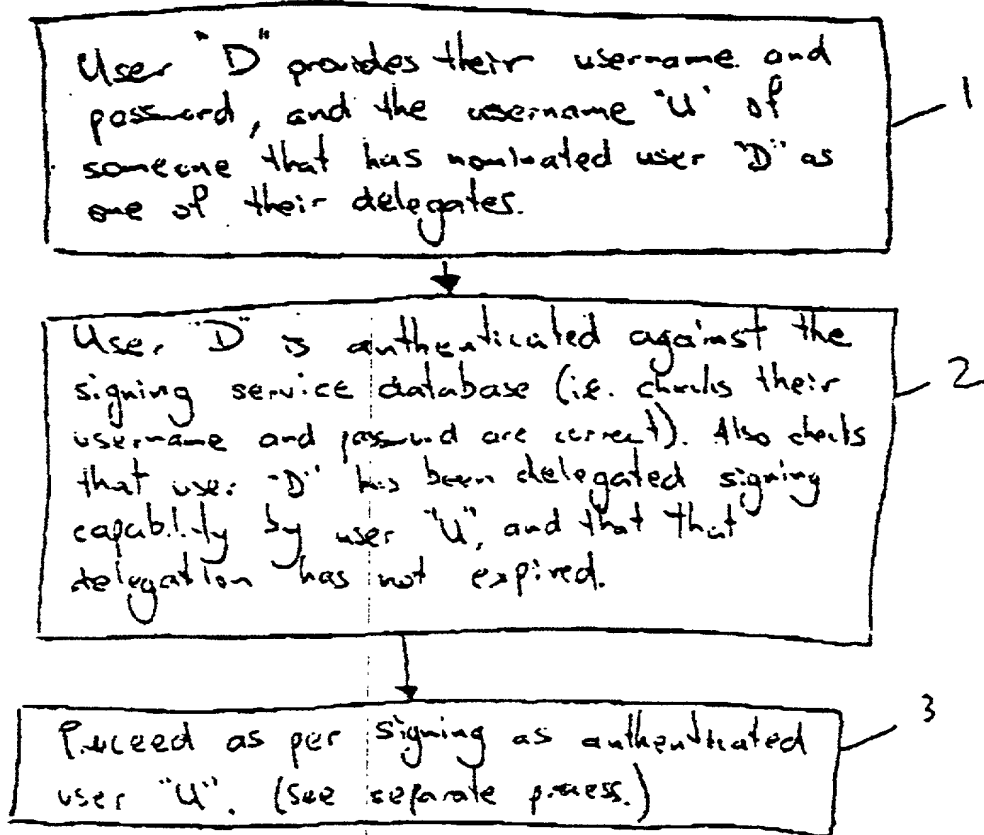 User "D" provides their username and
password, and the username "U" of
someone that has nominated user "D" as
one of their delegates.
1
User "D" is authenticated against the
signing service database (i.e. checks their
username and password are correct). Also checks
that user "D" has been delegated signing
capability by user "U", and that that
delegation has not expired.
2
Proceed as per signing as authenticated
user "U". (see separate process.)
3